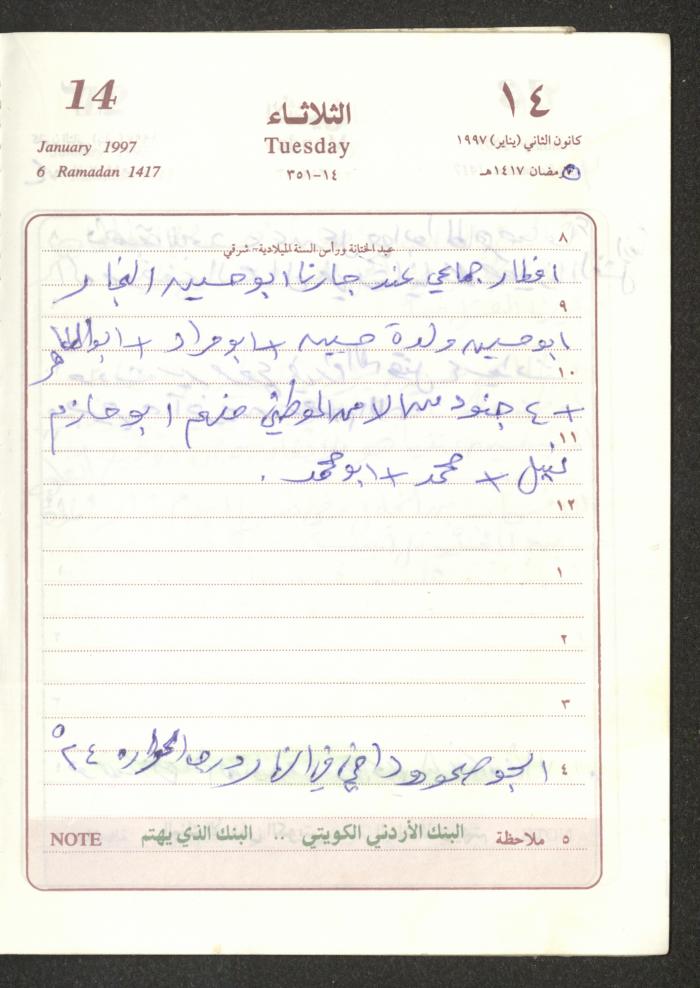 14
الثلاثاء
١٤
January 1997
Tuesday
كانون الثاني (يناير) ١٩٩٧
6 Ramadan 1417
١٤-٣٥١
رمضان ١٤١٧هـ
٨
عيد الختانة ورأس السنة الميلادية - شرقي
افطار جماعي عند جارنا ابو حسين النجار
٩
ابو حسين وولده حسين + ابو مراد + ابو الطاهر
١٠
+ ٤ جنود من الامن الوطني منهم ابو حازم
١١
نبيل + محمد + ابو محمد .
١٢
١
٢
٣
الجو صحو ودافئ في النهار ودرجه الحراره ٢٤°
٤
NOTE البنك الأردني الكويتي .. البنك الذي يهتم ملاحظة ٥